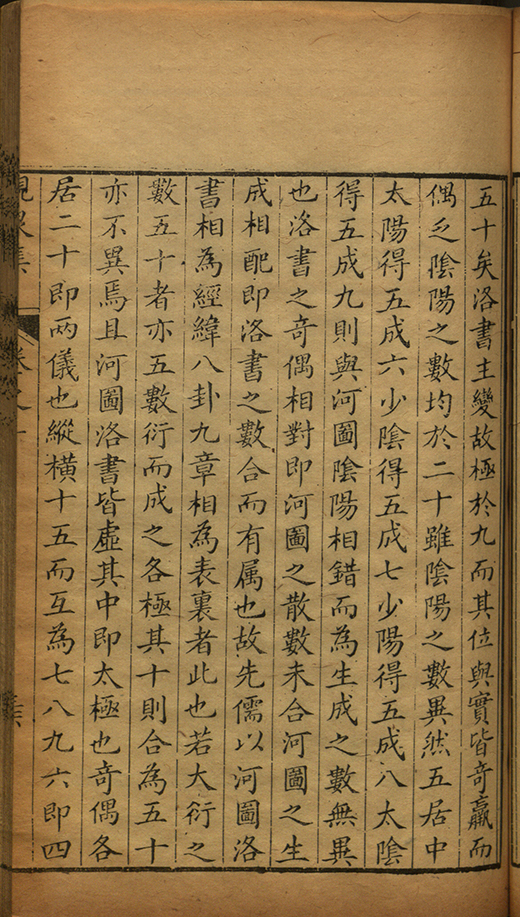 五十矣洛書主變故極於九而其位與實皆奇贏而
偶乏陰陽之數均於二十雖陰陽之數異然五居中
太陽得五成六少陰得五成七少陽得五成八太陰
得五成九則與河圖陰陽相錯而為生成之數無異
也洛書之奇偶相對即河圖之散數未合河圖之生
成相配即洛書之數合而有属也故先儒以河圖洛
書相為經緯八卦九章相為表裏者此也若大衍之
數五十者亦五數衍而成之各極其十則合為五十
亦不異焉且河圖洛書皆虛其中即太極也奇偶各
居二十即兩儀也縱橫十五而互為七八九六即四
卷之一